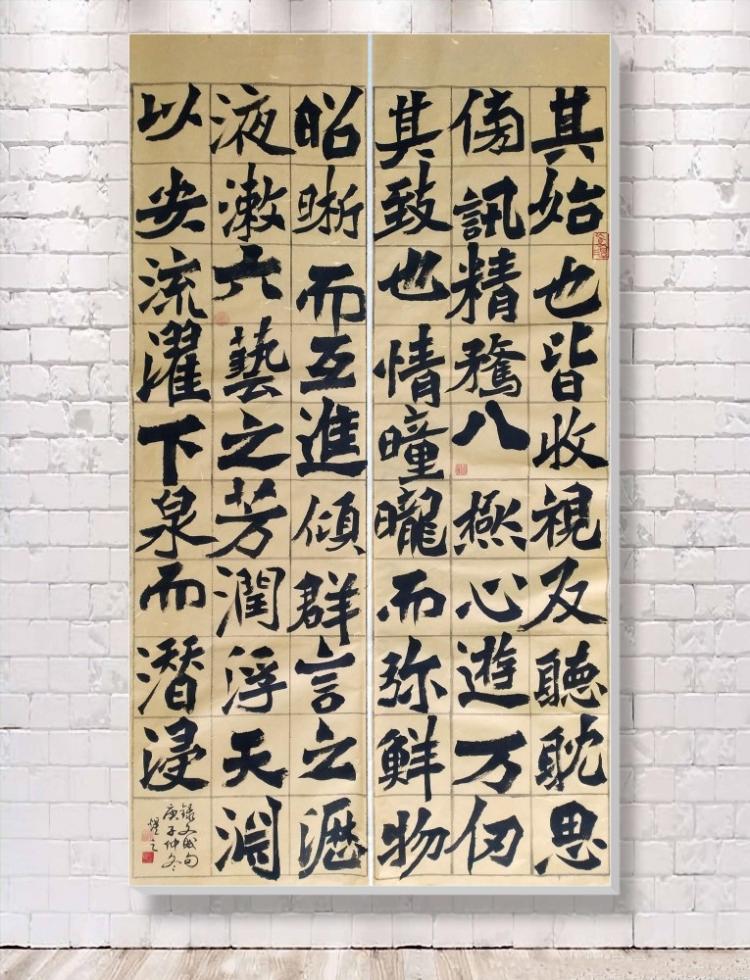 其始也皆收視反聽耽思
傍訊精騖八極心遊万仞
其致也情曈曨而弥鮮物
昭晰而互進傾群言之瀝
液漱六藝之芳潤浮天淵
以安流濯下泉而潛浸
録文賦句
庚子仲冬